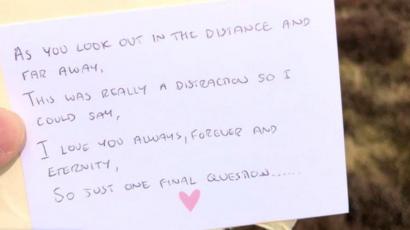 AS YOU LOOK OUT IN THE DISTANCE AND
FAR AWAY,
THIS WAS REALLY A DISTRACTION SO I
COULD SAY,
I LOVE YOU ALWAYS, FOREVER AND
ETERNITY,
SO JUST ONE FINAL QUESTION......